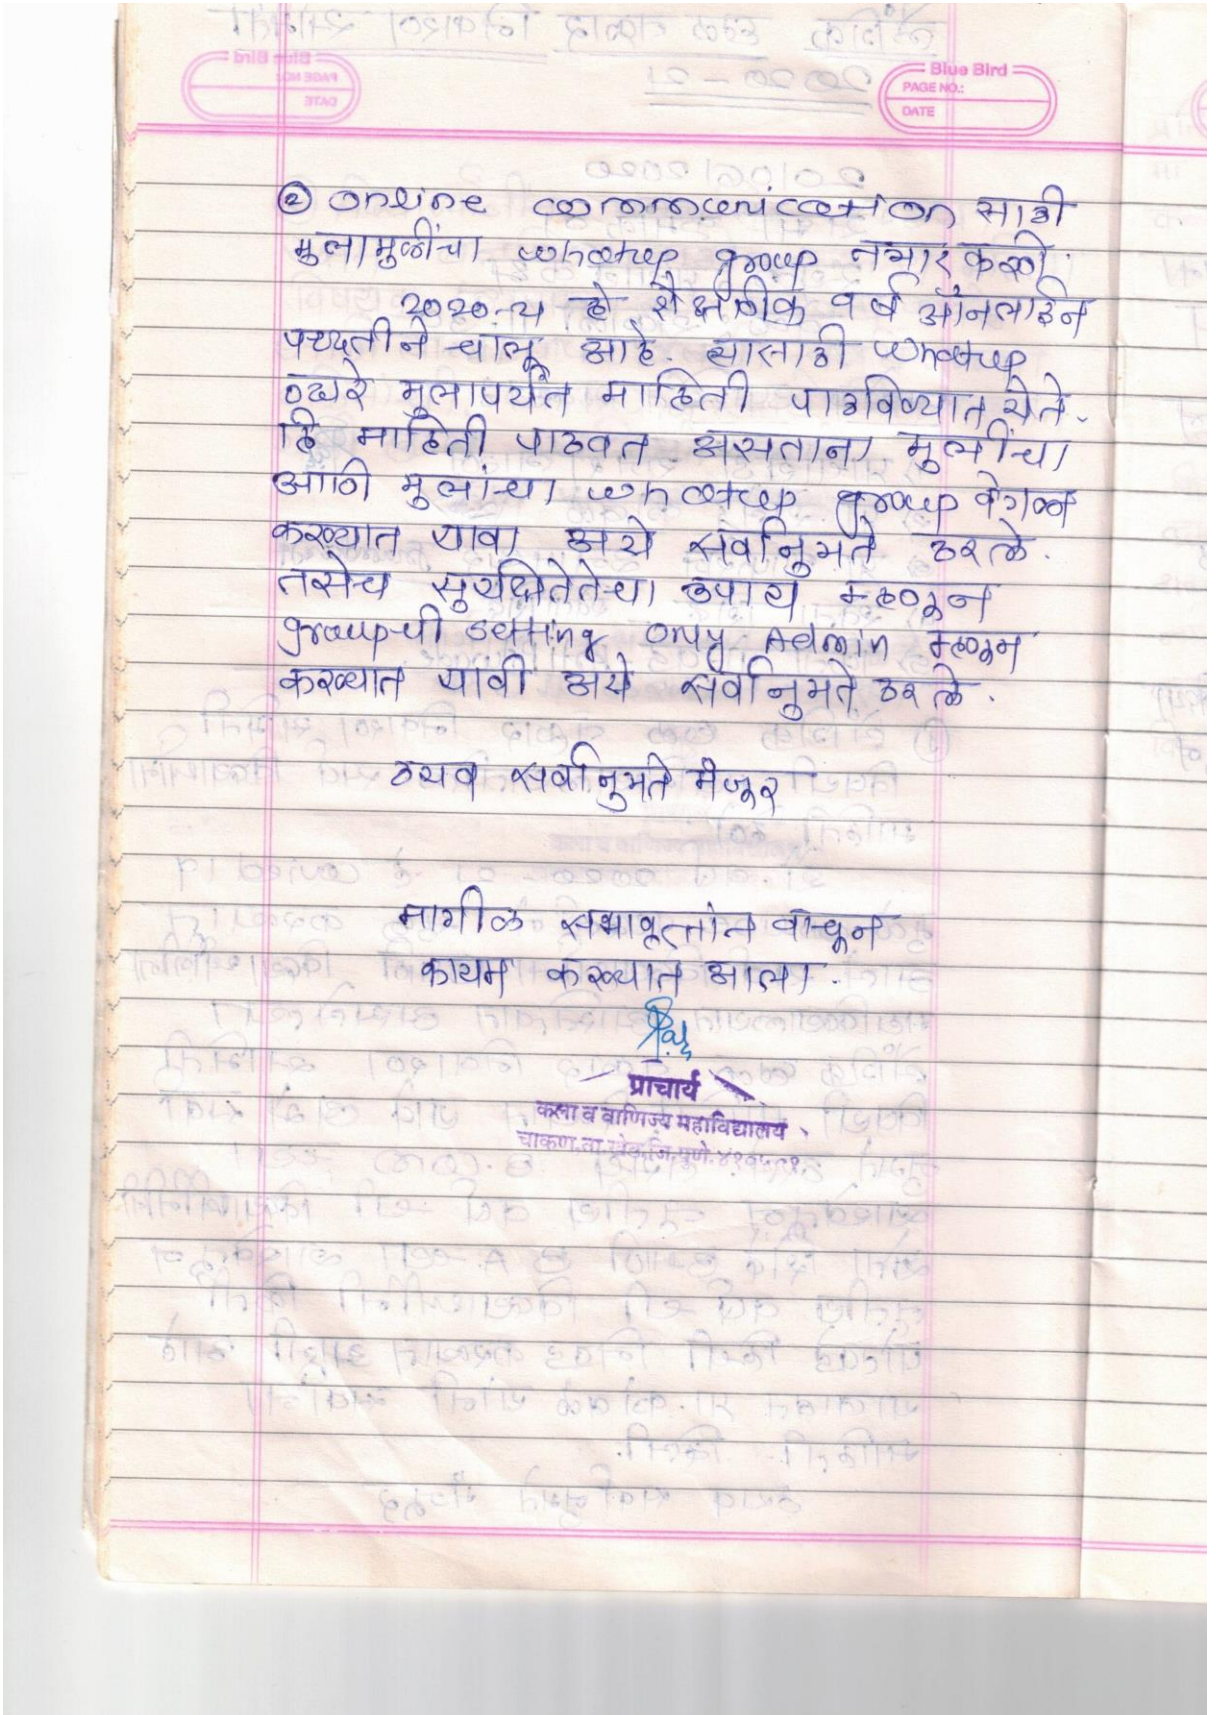 Blue Bird
PAGE NO.:
DATE
② online communication साठी
मुलामुलींचा whatsup group तयार करणे.
२०२०-२१ हे शैक्षणीक वर्ष ऑनलाईन
पध्दतीने चालू आहे. त्यासाठी whatsup
व्दारे मुलापर्यंत माहिती पाठविण्यात येते.
हि माहिती पाठवत असताना मुलींचा
आणि मुलांचा whatsup group वेगळा
करण्यात यावा असे सर्वानुमते ठरले.
तसेच सुरक्षितेतेचा उपाय म्हणून
groupची setting only Admin म्हणून
करण्यात यावी असे सर्वानुमते ठरले.
ठराव सर्वानुमते मंजूर
मागील सभावृत्तांत वाचून
कायम करण्यात आला.
प्राचार्य
कला व वाणिज्य महाविद्यालय,
चाकण, ता. खेड, जि. पुणे.